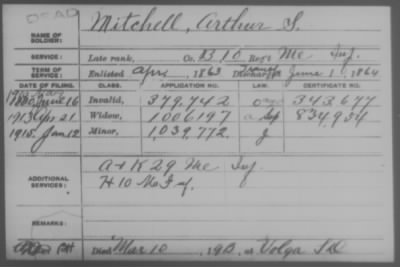 DEAD
NAME OF SOLDIER: Mitchell, Arthur S.
SERVICE: Late rank, Co. B 10 Reg't Me Inf.
TERM OF SERVICE: Enlisted Apr 1863 Discharged June 1, 1864
DATE OF FILING. CLASS. APPLICATION NO. LAW. CERTIFICATE NO.
June 16 Invalid, 379.742 343.677
1913 Apr 21 Widow, 1006197 834,954
1915 Jan 12 Minor, 1,039,772. g
ADDITIONAL SERVICES: A + K 29 Me Inf
H 10 Me Inf.
REMARKS:
Died Mar 10, 1913, at Volga S D